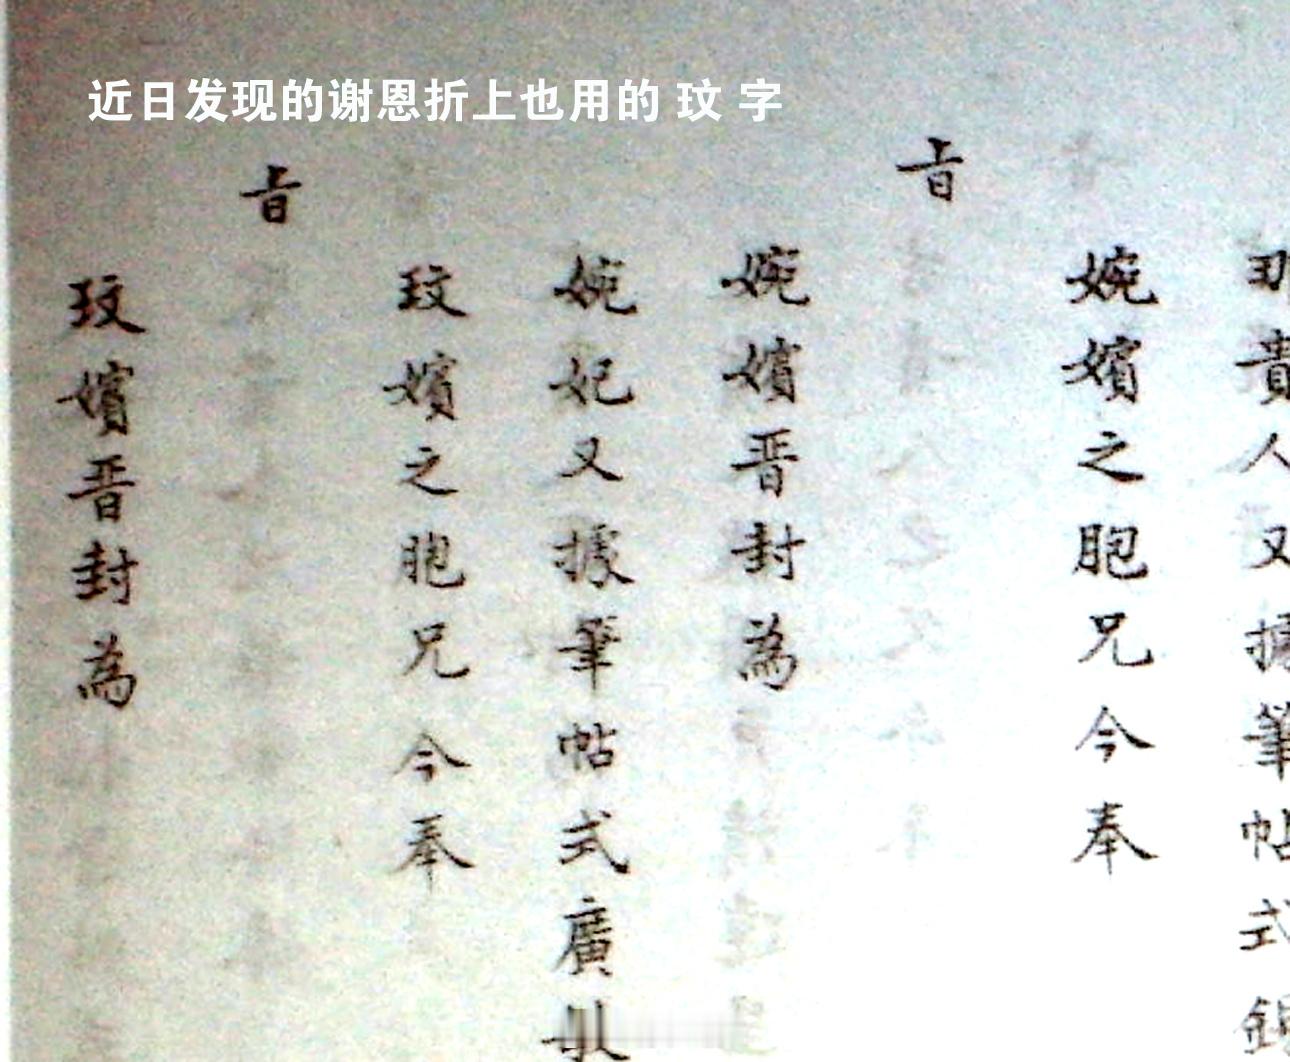 近日发现的谢恩折上也用的 玟 字
貴人又據筆帖式
婉嬪之胞兄今奉
旨
婉嬪晋封為
婉妃又據筆帖式廣
玟嬪之胞兄今奉
旨
玟嬪晋封為